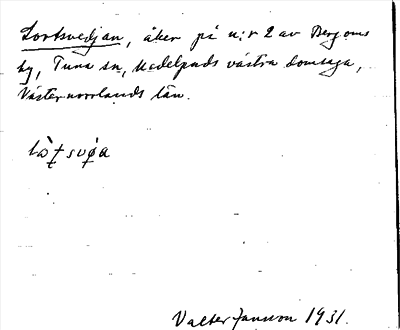 Lortsvedjan, åker på n:r 2 av Bergoms
by, Tuna sn, Medelpads västra domsaga,
Västernorrlands län.
Valter Jansson 1931.